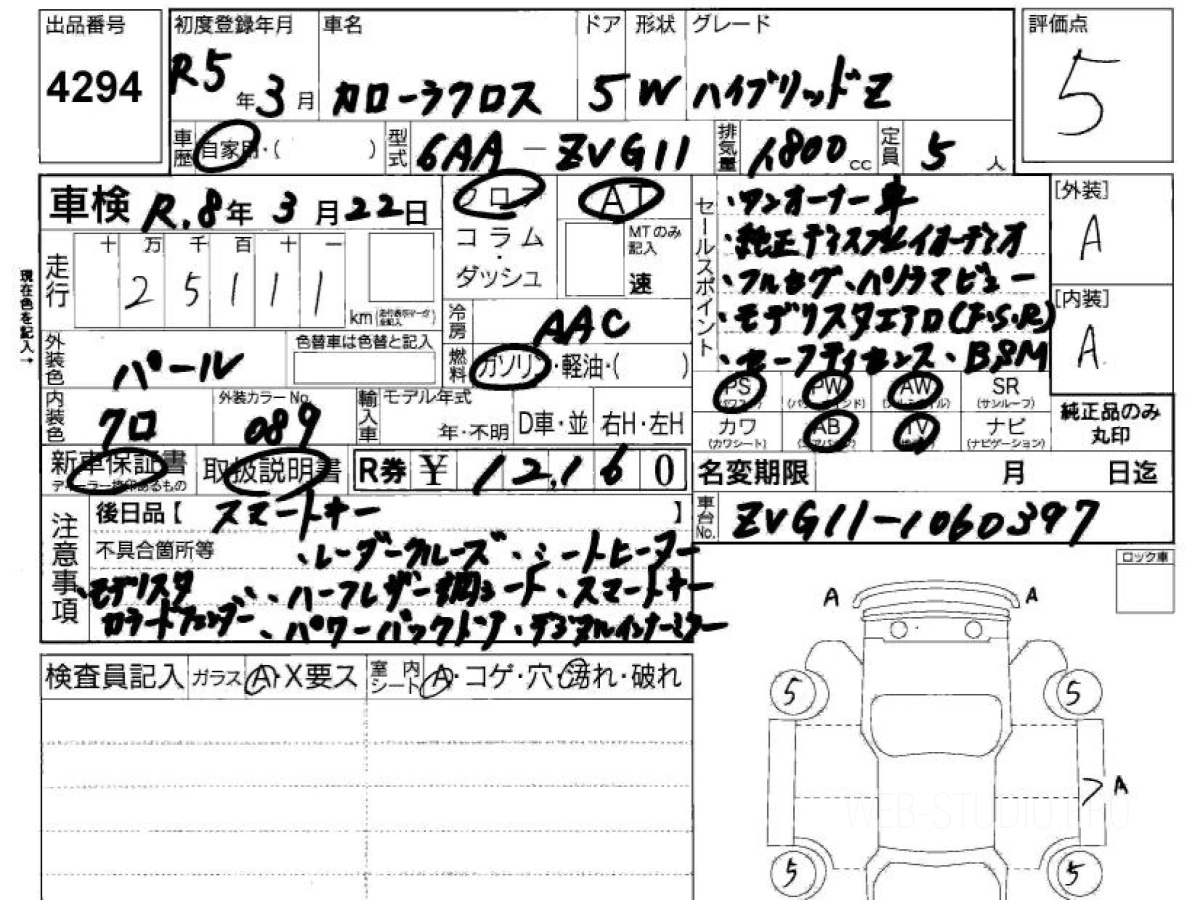 出品番号 初度登録年月 車名 ドア 形状 グレード 評価点
4294 R5年3月 カローラクロス 5 W ハイブリッドZ 5
車歴 自家用・( ) 型式 6AA-ZVG11 排気量 1800cc 定員 5人
車検 R.8年3月22日 フロア AT セールスポイント ・ワンオーナー車 [外装]
コラム・ MTのみ記入 ・純正ディスプレイオーディオ A
走行 十 万 千 百 十 一 ダッシュ 速 ・フルセグ、パノラマビュー
現在色を記入→ 25111 km 冷房 AAC ・モデリスタエアロ(F.S.R) [内装]
外装色 パール 色替車は色替と記入 燃料 ガソリン・軽油・( ) ・セーフティセンス・BSM A
PS PW AW SR
(サンルーフ)
内装色 クロ 外装カラーNo. 089 輸入車 モデル年式 年・不明 D車・並 右H・左H カワ AB TV ナビ 純正品のみ丸印
(カワシート) (ナビゲーション)
新車保証書 取扱説明書 R券 ¥ 12,160 名変期限 月 日迄
ディーラー捺印あるもの
注意事項 後日品【 スマートキー 】 車台No. ZVG11-1060397
不具合箇所等 ・レーダークルーズ・シートヒーター
・モデリスタ ・ハーフレザー調シート・スマートキー ロック車
カラードフェンダー ・パワーバックドア・デジタルインナーミラー
A A
検査員記入 ガラス A・X要ス 室内シート A・コゲ・穴・汚れ・破れ
5 5
A
WEB-STUDIO.PRO
5 5